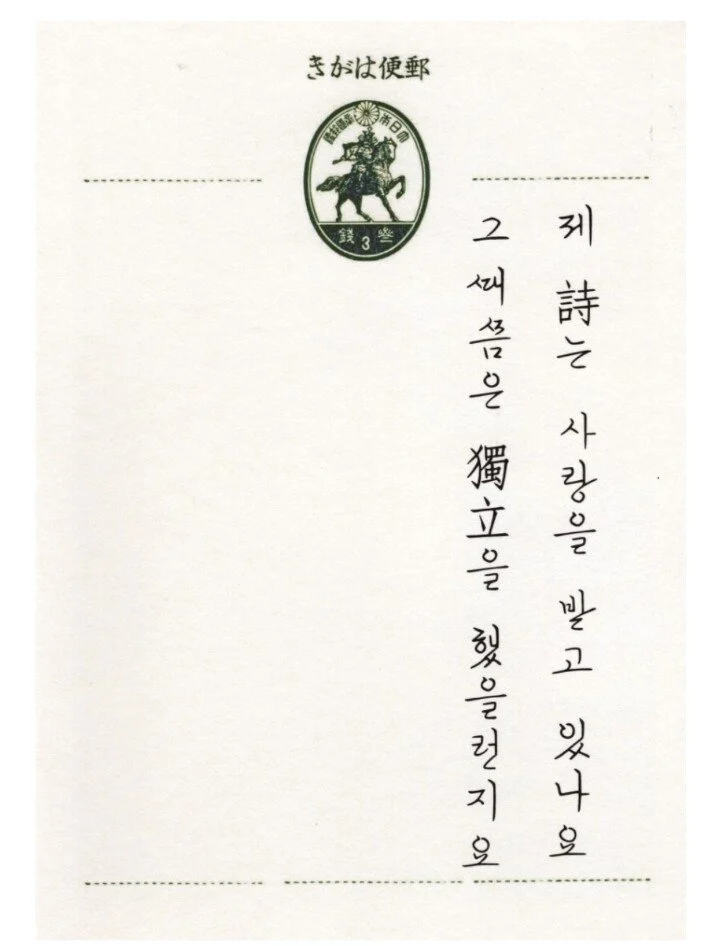 きがは便郵
大日本帝國郵便
錢 3 叁
제 詩는 사랑을 받고 있나요
그 때쯤은 獨立을 했을런지요